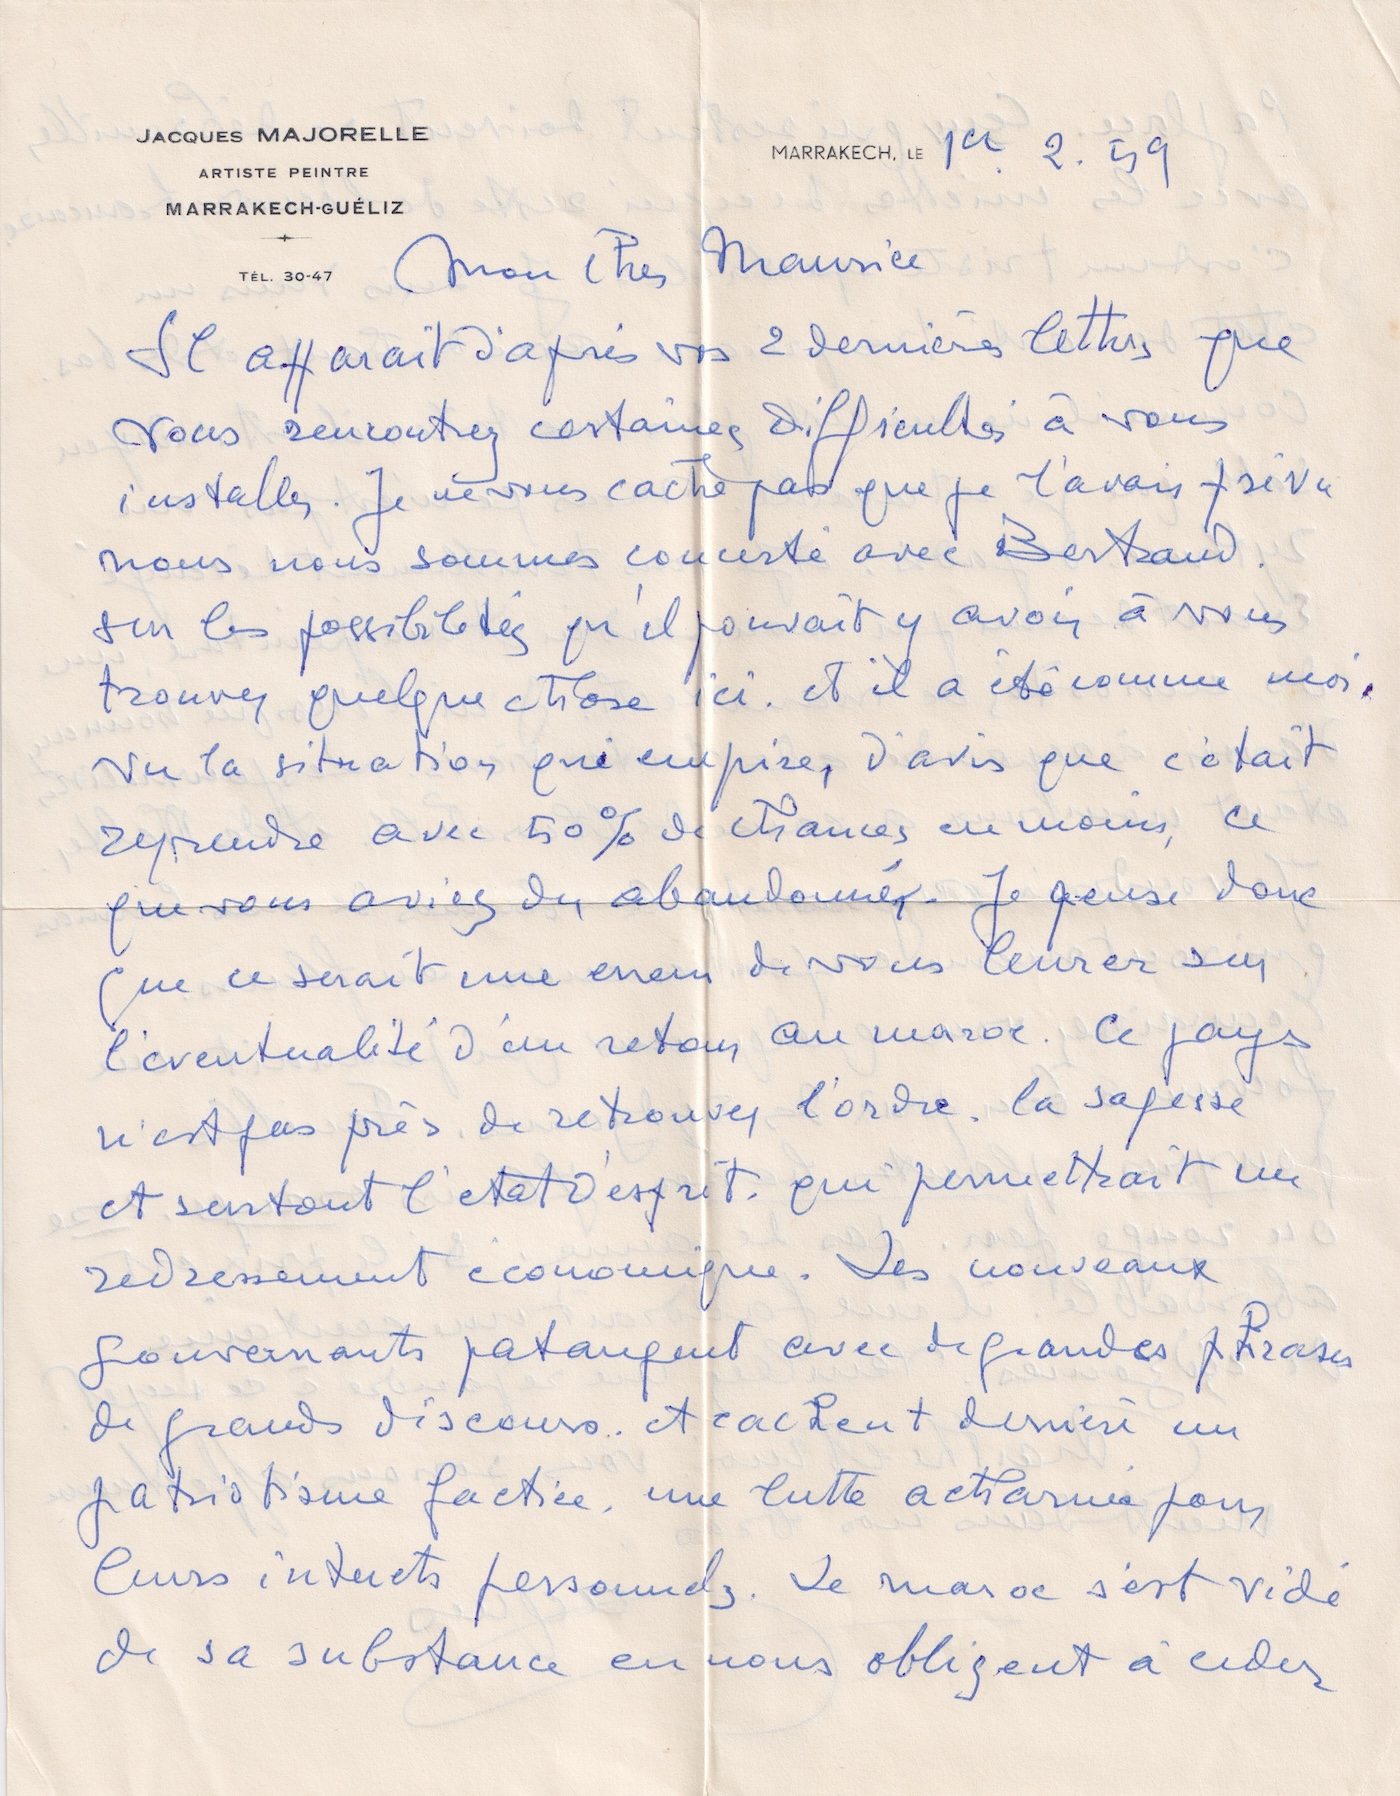 JACQUES MAJORELLE
ARTISTE PEINTRE
MARRAKECH-GUÉLIZ
TÉL. 30-47
MARRAKECH, LE 1er. 2. 59
Mon cher Maurice
Il apparait d'après vos 2 dernières lettres que
vous rencontrez certaines difficultés à vous
installer. Je ne vous cache pas que je l'avais prévu
nous nous sommes concerté avec Bertrand.
sur les possibilités qu'il pouvait y avoir à vous
trouver quelque chose ici. et il a été comme moi.
vu la situation qui empire, d'avis que c'était
reprendre avec 50% de chances en moins, ce
que vous aviez du abandonner. Je pense donc
que ce serait une erreur de vous leurrer sur
l'éventualité d'un retour au maroc. Ce pays
n'est pas près de retrouver l'ordre. la sagesse
et surtout l'état d'esprit. qui permettrait un
redressement économique. Les nouveaux
gouvernants pataugent avec de grandes phrases
de grands discours.. et cachent derrière un
patriotisme factice, une lutte acharnée pour
leurs intérets personnels. Le maroc s'est vidé
de sa substance en nous obligent à ceder